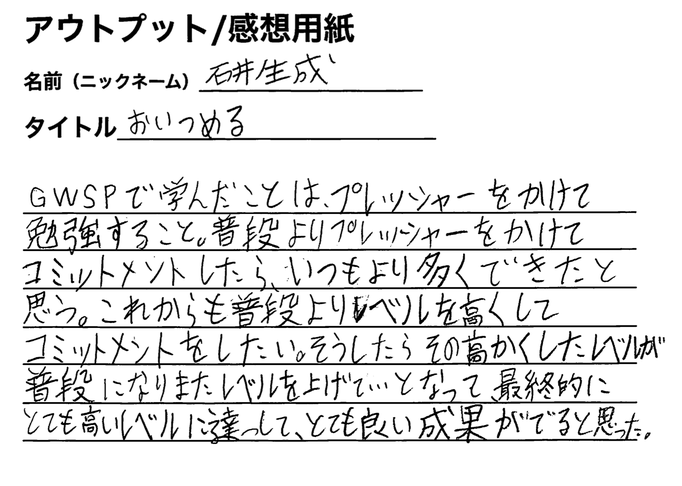 アウトプット/感想用紙
名前（ニックネーム） 石井生成
タイトル おいつめる
GWSPで学んだことは、プレッシャーをかけて
勉強すること。普段よりプレッシャーをかけて
コミットメントしたら、いつもより多くできたと
思う。これからも普段よりレベルを高くして
コミットメントをしたい。そうしたらその高かくしたレベルが
普段になりまたレベルを上げて…となって、最終的に
とても高いレベルに達っして、とても良い成果がでると思った。